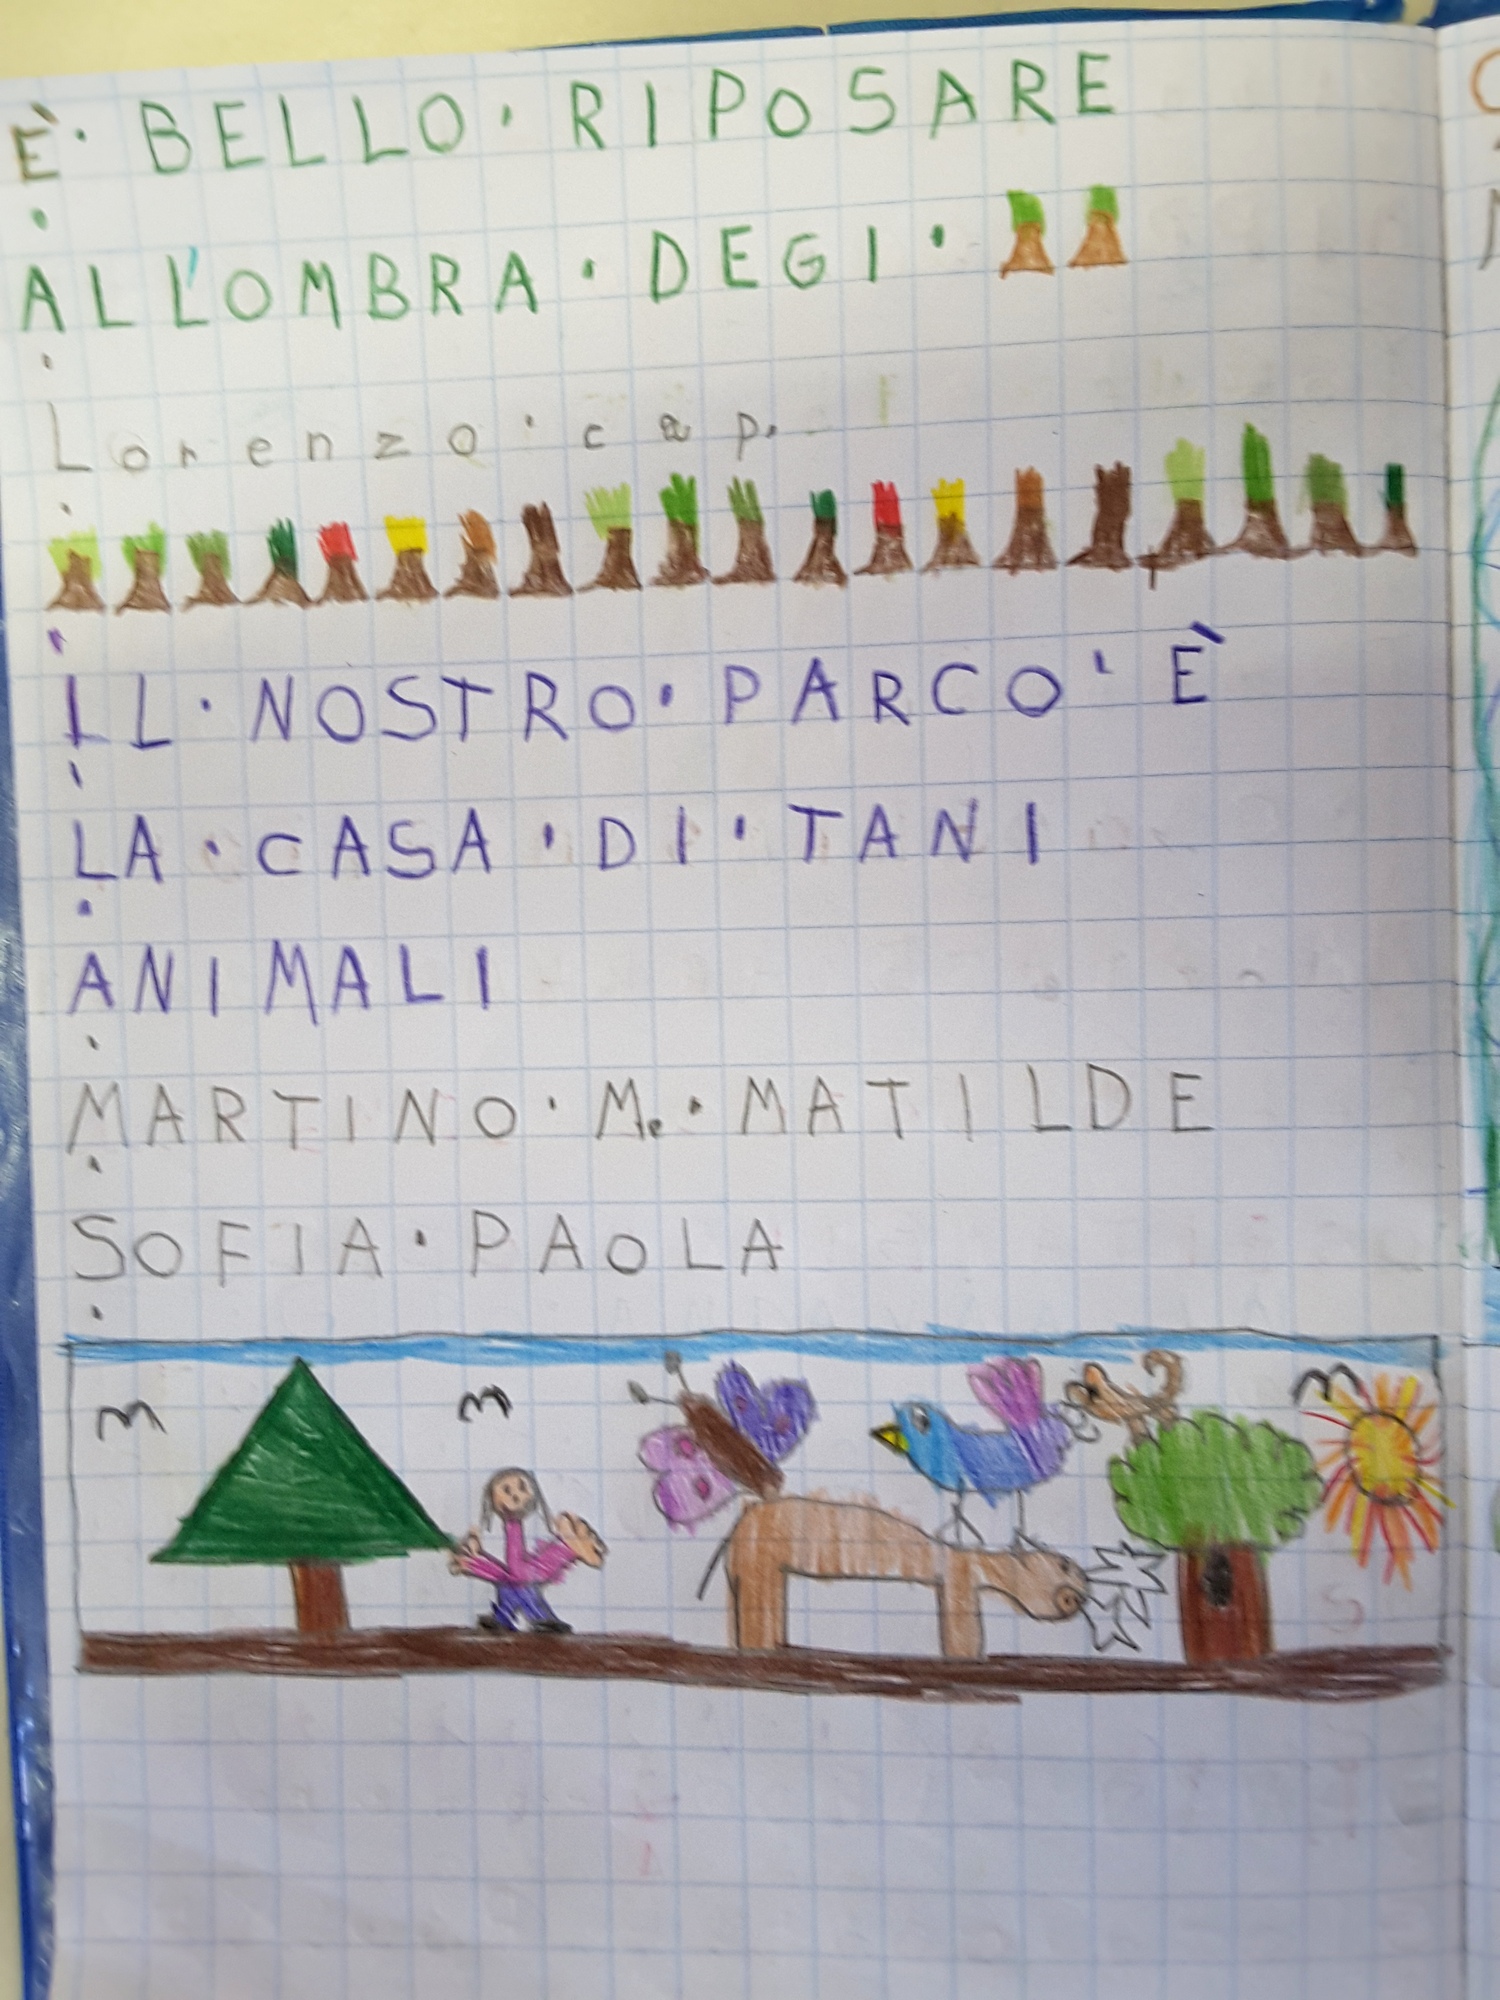 È · BELLO · RIPOSARE
ALL'OMBRA · DEGI ·
Lorenzo · cap.
IL · NOSTRO · PARCO · È
LA · CASA · DI · TANI
ANIMALI
MARTINO · M. · MATILDE
SOFIA · PAOLA